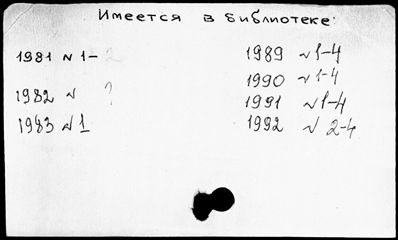 Имеется в библиотеке:
1981 N 1-
1982 N ?
1983 N 1
1989 N 1-4
1990 N 1-4
1991 N 1-4
1992 N 2-4